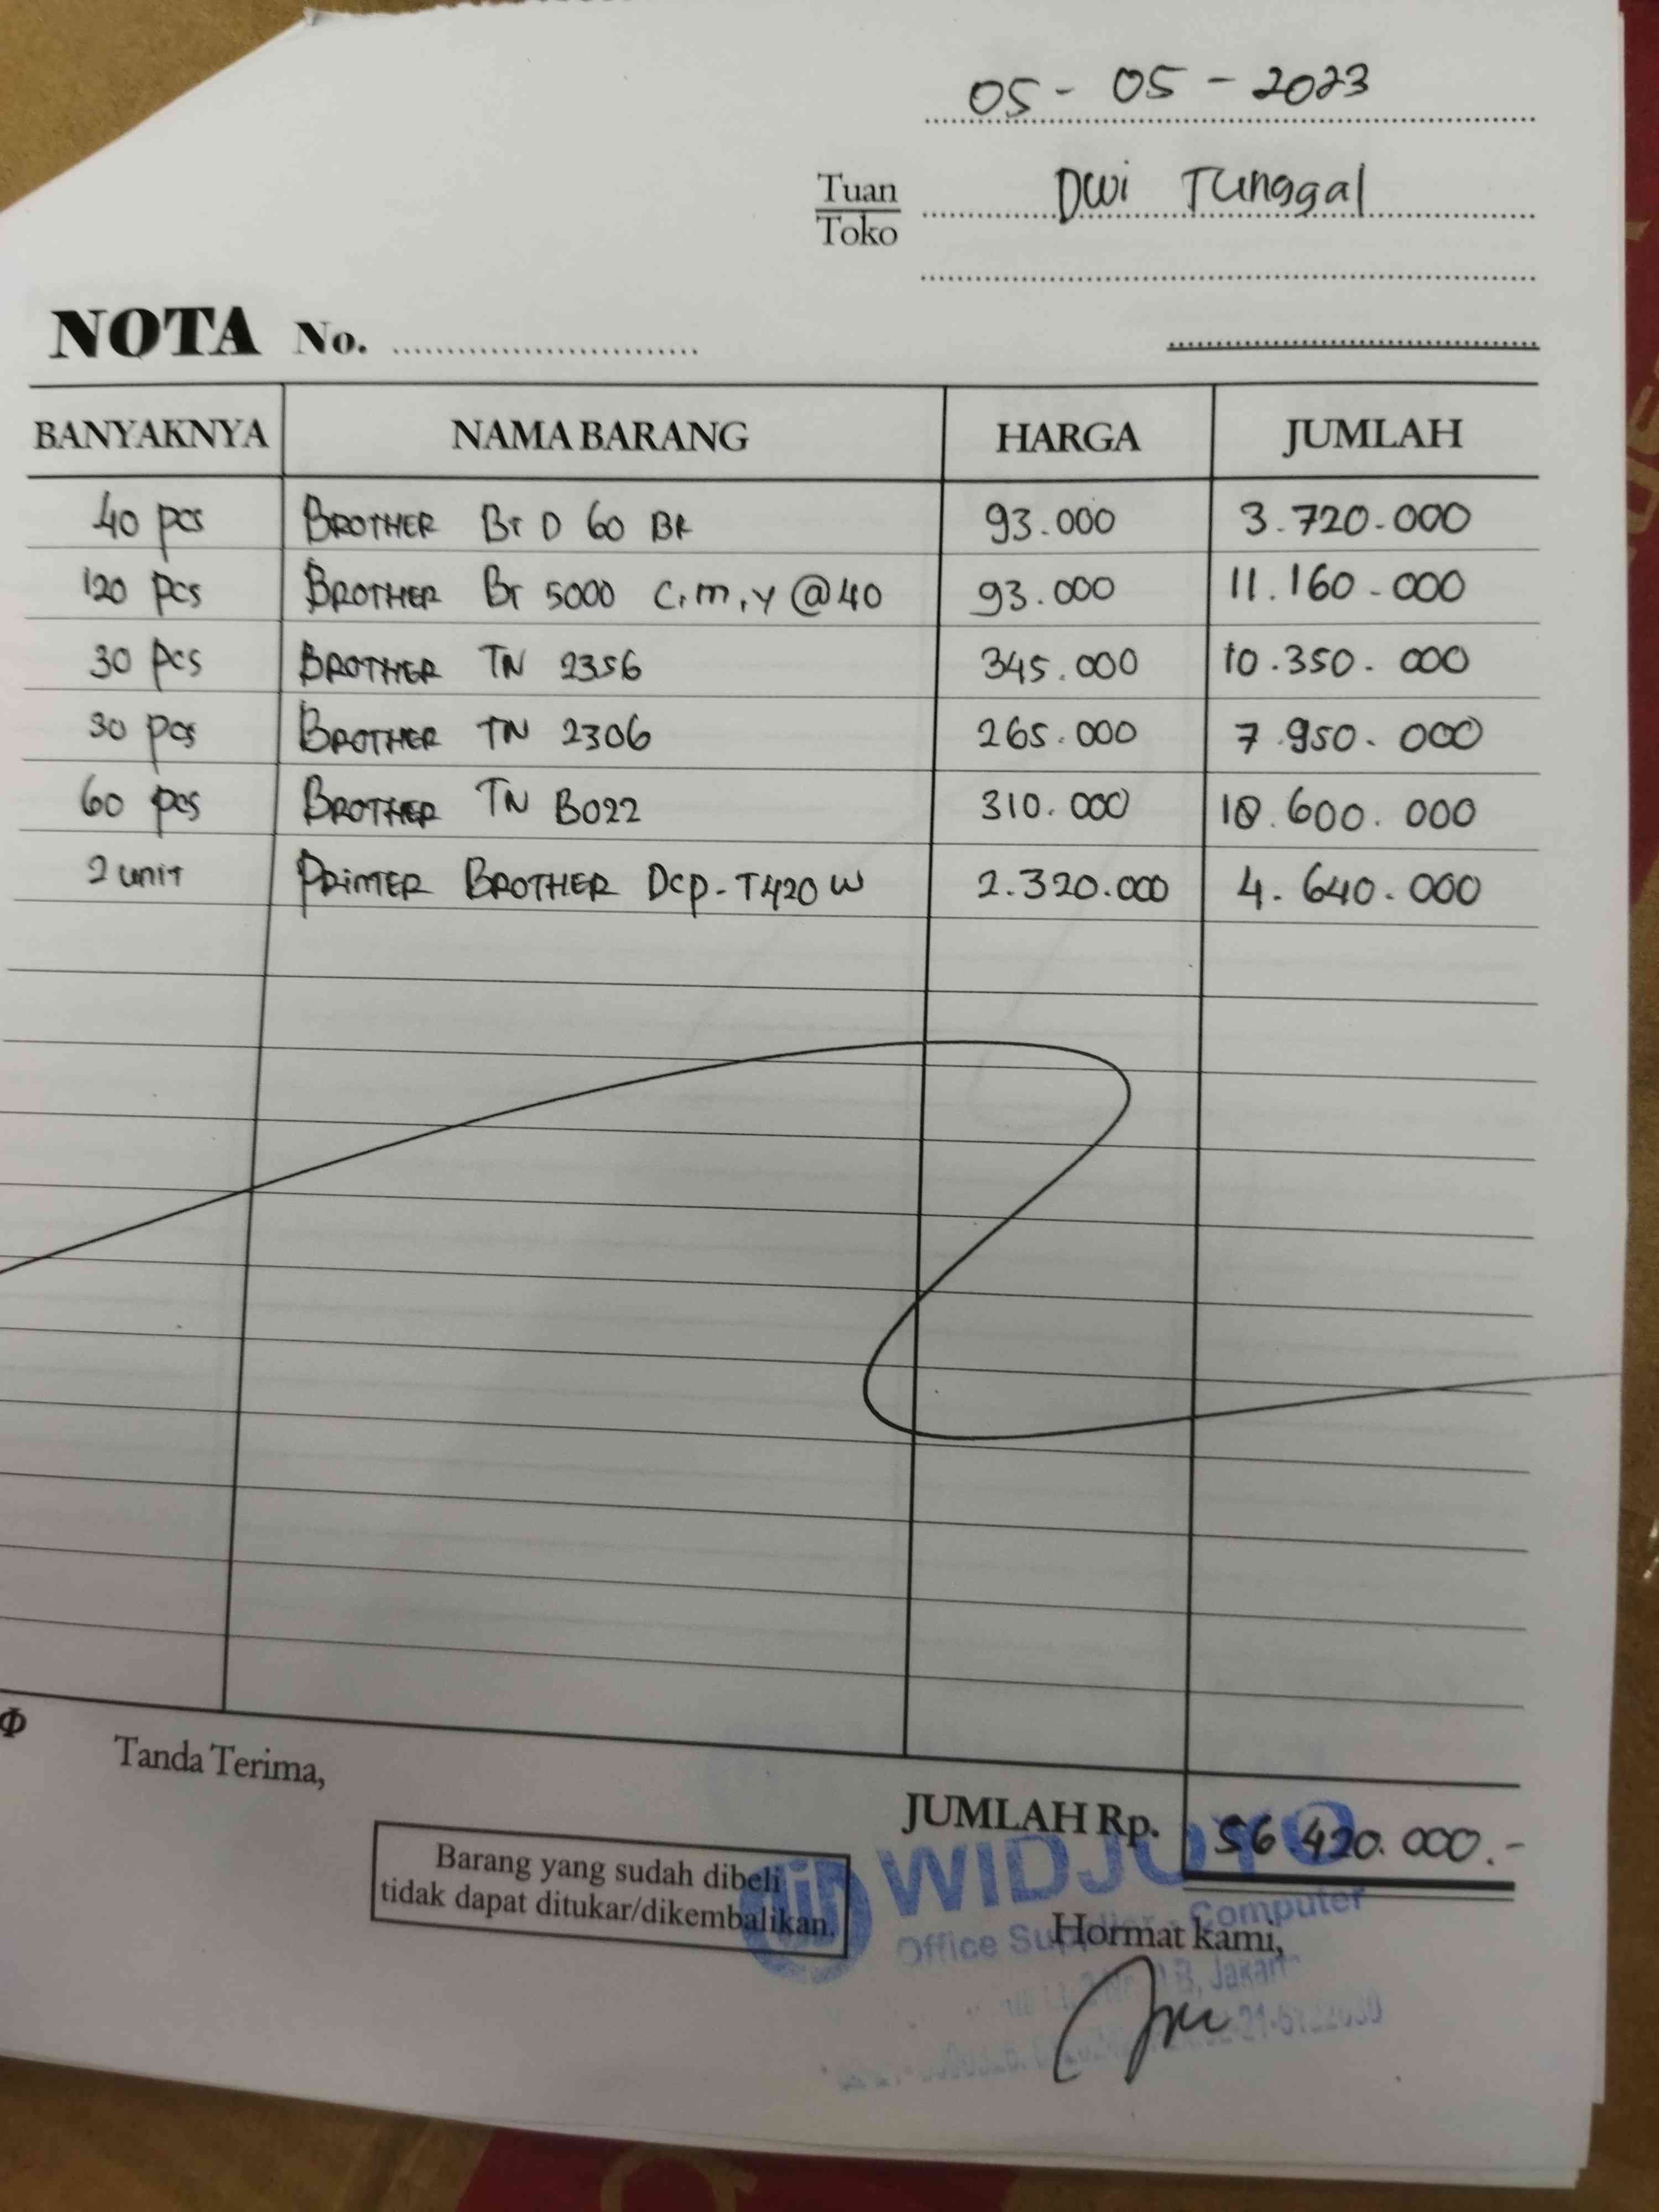 05 - 05 - 2023
Tuan
Toko
Dwi Tunggal
NOTA No.
BANYAKNYA NAMA BARANG HARGA JUMLAH
40 pcs BROTHER BT D 60 BK 93.000 3.720.000
120 pcs BROTHER BT 5000 C,M,Y @40 93.000 11.160.000
30 pcs BROTHER TN 2356 345.000 10.350.000
30 pcs BROTHER TN 2306 265.000 7.950.000
60 pcs BROTHER TN B022 310.000 18.600.000
2 unit PRINTER BROTHER DCP-T420 W 2.320.000 4.640.000
Tanda Terima,
JUMLAH Rp. 56 420.000.-
Barang yang sudah dibeli
tidak dapat ditukar/dikembalikan.
WIDJOYO
Office Supplier - Computer
Hormat kami,